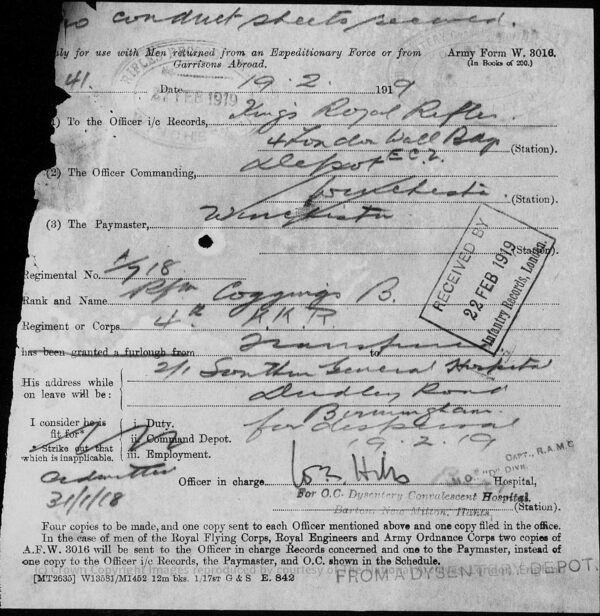 no conduct sheets received.
ly for use with Men returned from an Expeditionary Force or from
Garrisons Abroad.
Army Form W. 3016.
(In Books of 200.)
41.
Date 19.2. 1919
21 FEB 1919
1) To the Officer i/c Records, Kings Royal Rifles
4 London Wall Bdgs
E.C.2. (Station).
(2) The Officer Commanding, depot
Winchester (Station).
(3) The Paymaster, Winchester
(Station).
RECEIVED BY
22 FEB 1919
Infantry Records, London.
Regimental No. 718
Rank and Name Rfm Coggings B.
Regiment or Corps 4th K.R.R.
has been granted a furlough from Transferred to
His address while
on leave will be:
2/1 Southern General Hospital
Dudley Road
Birmingham.
for dispersal
19.2.19
I consider he is
fit for
Strike out that
which is inapplicable.
i. Duty.
ii. Command Depot.
iii. Employment.
Admitted
31/1/18
CAPT., R.A.M.C
M.O. "D" DIVN.
Officer in charge Hospital,
For O.C. Dysentery Convalescent Hospital.
Barton New Milton, Hants. (Station).
Four copies to be made, and one copy sent to each Officer mentioned above and one copy filed in the office.
In the case of men of the Royal Flying Corps, Royal Engineers and Army Ordnance Corps two copies of
A.F.W. 3016 will be sent to the Officer in charge Records concerned and one to the Paymaster, instead of
one copy to the Officer i/c Records, the Paymaster, and O.C. shown in the Schedule.
[MT2635] W13581/M1452 12m bks. 1/17sr G & S E. 842
FROM A DYSENTERY DEPOT.
(c) Crown Copyright Images reproduced by courtesy of